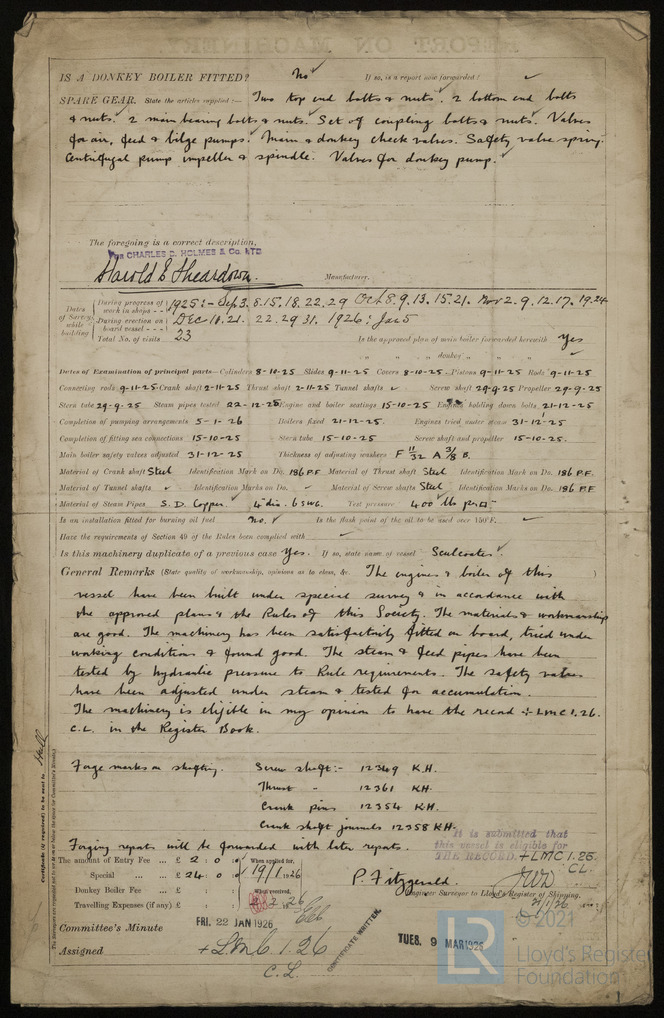 IS A DONKEY BOILER FITTED? No If so, is a report now forwarded?
SPARE GEAR. State the articles supplied:— Two top end bolts & nuts. 2 bottom end bolts
& nuts. 2 main bearing bolts & nuts. Set of coupling bolts & nuts. Valves
for air, feed & bilge pumps. Main & donkey check valves. Safety valve spring.
Centrifugal pump impeller & spindle. Valves for donkey pump.
The foregoing is a correct description,
FOR CHARLES D. HOLMES & Co. LTD
Harold E Sheardown. Manufacturer.
Dates of Survey while building
During progress of work in shops - - 1925:- Sep 3. 8. 15. 18. 22. 29 Oct 8. 9. 13. 15. 21. Nov 2. 9. 12. 17. 19. 24
During erection on board vessel - - - Dec 18. 21. 22. 29 31. 1926: Jan 5
Total No. of visits 23 Is the approved plan of main boiler forwarded herewith Yes
" " " donkey " "
Dates of Examination of principal parts—Cylinders 8-10-25 Slides 9-11-25 Covers 8-10-25 Pistons 9-11-25 Rods 9-11-25
Connecting rods 9-11-25 Crank shaft 2-11-25 Thrust shaft 2-11-25 Tunnel shafts Screw shaft 29-9-25 Propeller 29-9-25
Stern tube 29-9-25 Steam pipes tested 22-12-25 Engine and boiler seatings 15-10-25 Engines holding down bolts 21-12-25
Completion of pumping arrangements 5-1-26 Boilers fixed 21-12-25 Engines tried under steam 31-12-25
Completion of fitting sea connections 15-10-25 Stern tube 15-10-25 Screw shaft and propeller 15-10-25.
Main boiler safety valves adjusted 31-12-25 Thickness of adjusting washers F 11/32 A 3/8 B.
Material of Crank shaft Steel Identification Mark on Do. 186 P.F. Material of Thrust shaft Steel Identification Mark on Do. 186 P.F.
Material of Tunnel shafts Identification Marks on Do. Material of Screw shafts Steel Identification Marks on Do. 186 P.F
Material of Steam Pipes S. D. Copper. 4" dia. 6 SWG. Test pressure 400 lbs per □"
Is an installation fitted for burning oil fuel no. Is the flash point of the oil to be used over 150°F.
Have the requirements of Section 49 of the Rules been complied with
Is this machinery duplicate of a previous case Yes. If so, state name of vessel Sculcoates.
General Remarks (State quality of workmanship, opinions as to class, &c. The engines & boiler of this
vessel have been built under special survey & in accordance with
the approved plans & the Rules of this Society. The materials & workmanship
are good. The machinery has been satisfactorily fitted on board, tried under
working conditions & found good. The steam & feed pipes have been
tested by hydraulic pressure to Rule requirements. The safety valves
have been adjusted under steam & tested for accumulation.
The machinery is eligible in my opinion to have the record + LMC 1.26.
C.L. in the Register Book.
Forge marks on shafting. Screw shaft:- 12349 K.H.
Thrust " 12361 K.H.
Crank pins 12354 K.H.
Crank shaft journals 12358 K.H.
Forging reports will be forwarded with later reports.
It is submitted that
this vessel is eligible for
THE RECORD. + LMC 1.26.
CL.
The amount of Entry Fee ... £ 2 : 0 : 0 When applied for,
Special ... ... £ 24 : 0 : 0 19/1/1926
Donkey Boiler Fee ... ... £ : : When received,
Travelling Expenses (if any) £ : :
P. Fitzgerald.
Engineer Surveyor to Lloyd's Register of Shipping.
Committee's Minute FRI. 22 JAN 1926 TUES. 9 MAR 1926
Assigned + LMC 1.26
C.L.
CERTIFICATE WRITTEN.
Certificate (if required) to be sent to Hull
The Surveyors are requested not to write on or below the space for Committee's Minute.
© 2021
Lloyd's Register
Foundation
LR